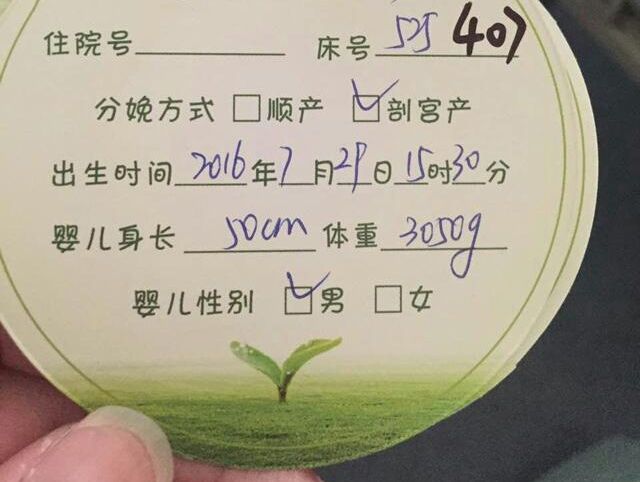 住院号 床号 525 407
分娩方式 □顺产 ☑剖宫产
出生时间 2016年7月29日15时30分
婴儿身长 50cm 体重 3050g
婴儿性别 ☑男 □女